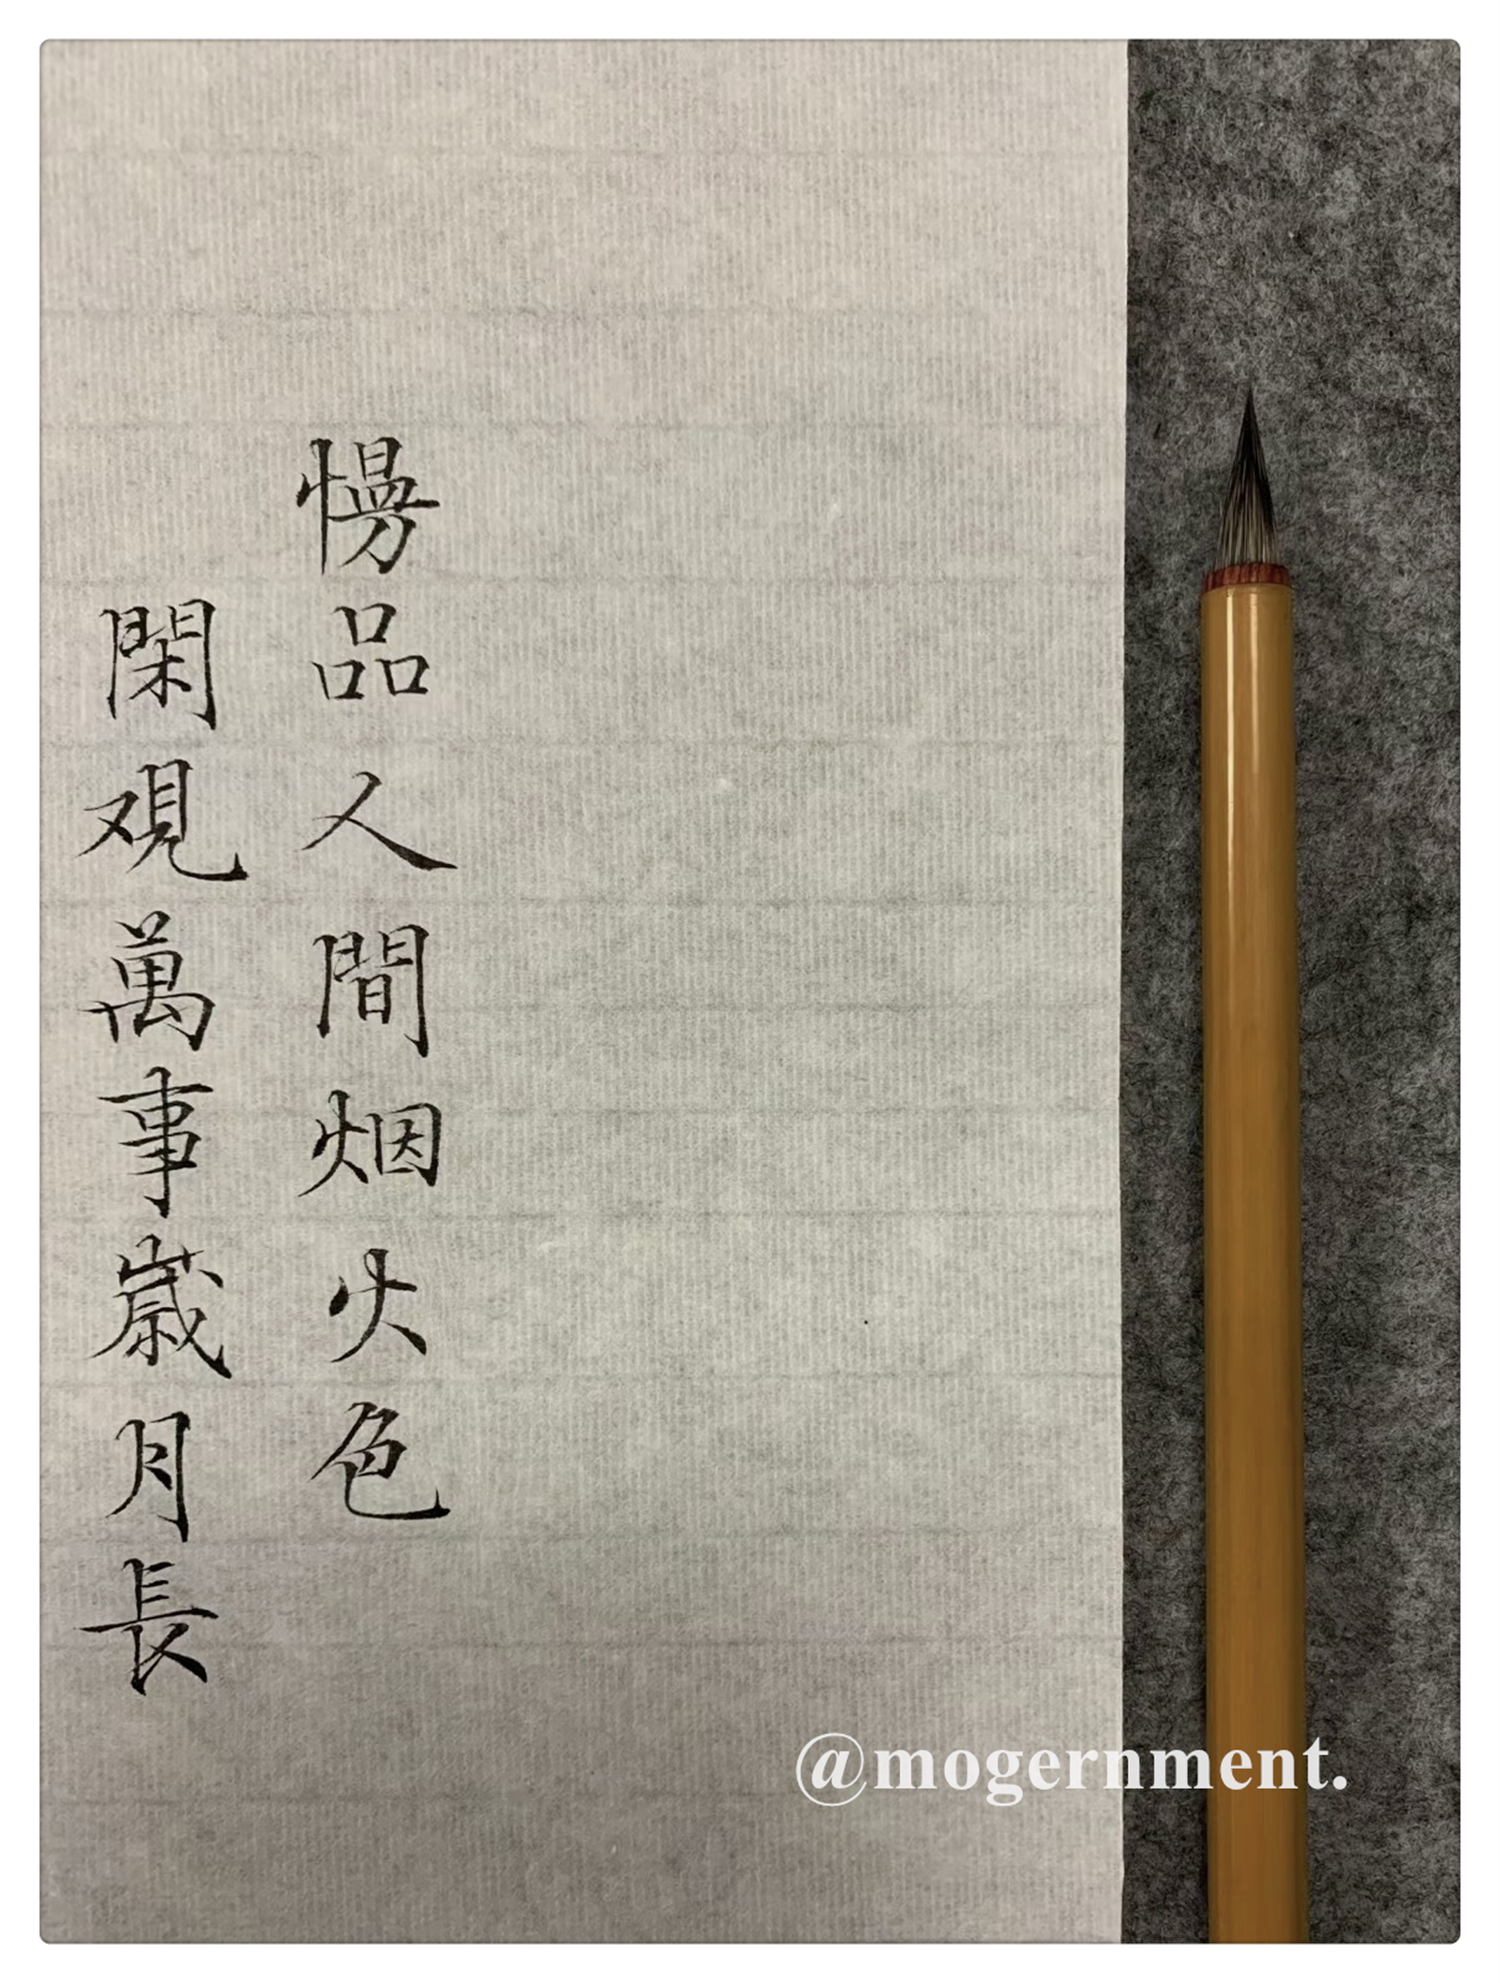 慢品人間烟火色
閑观萬事歲月長
@mogernment.